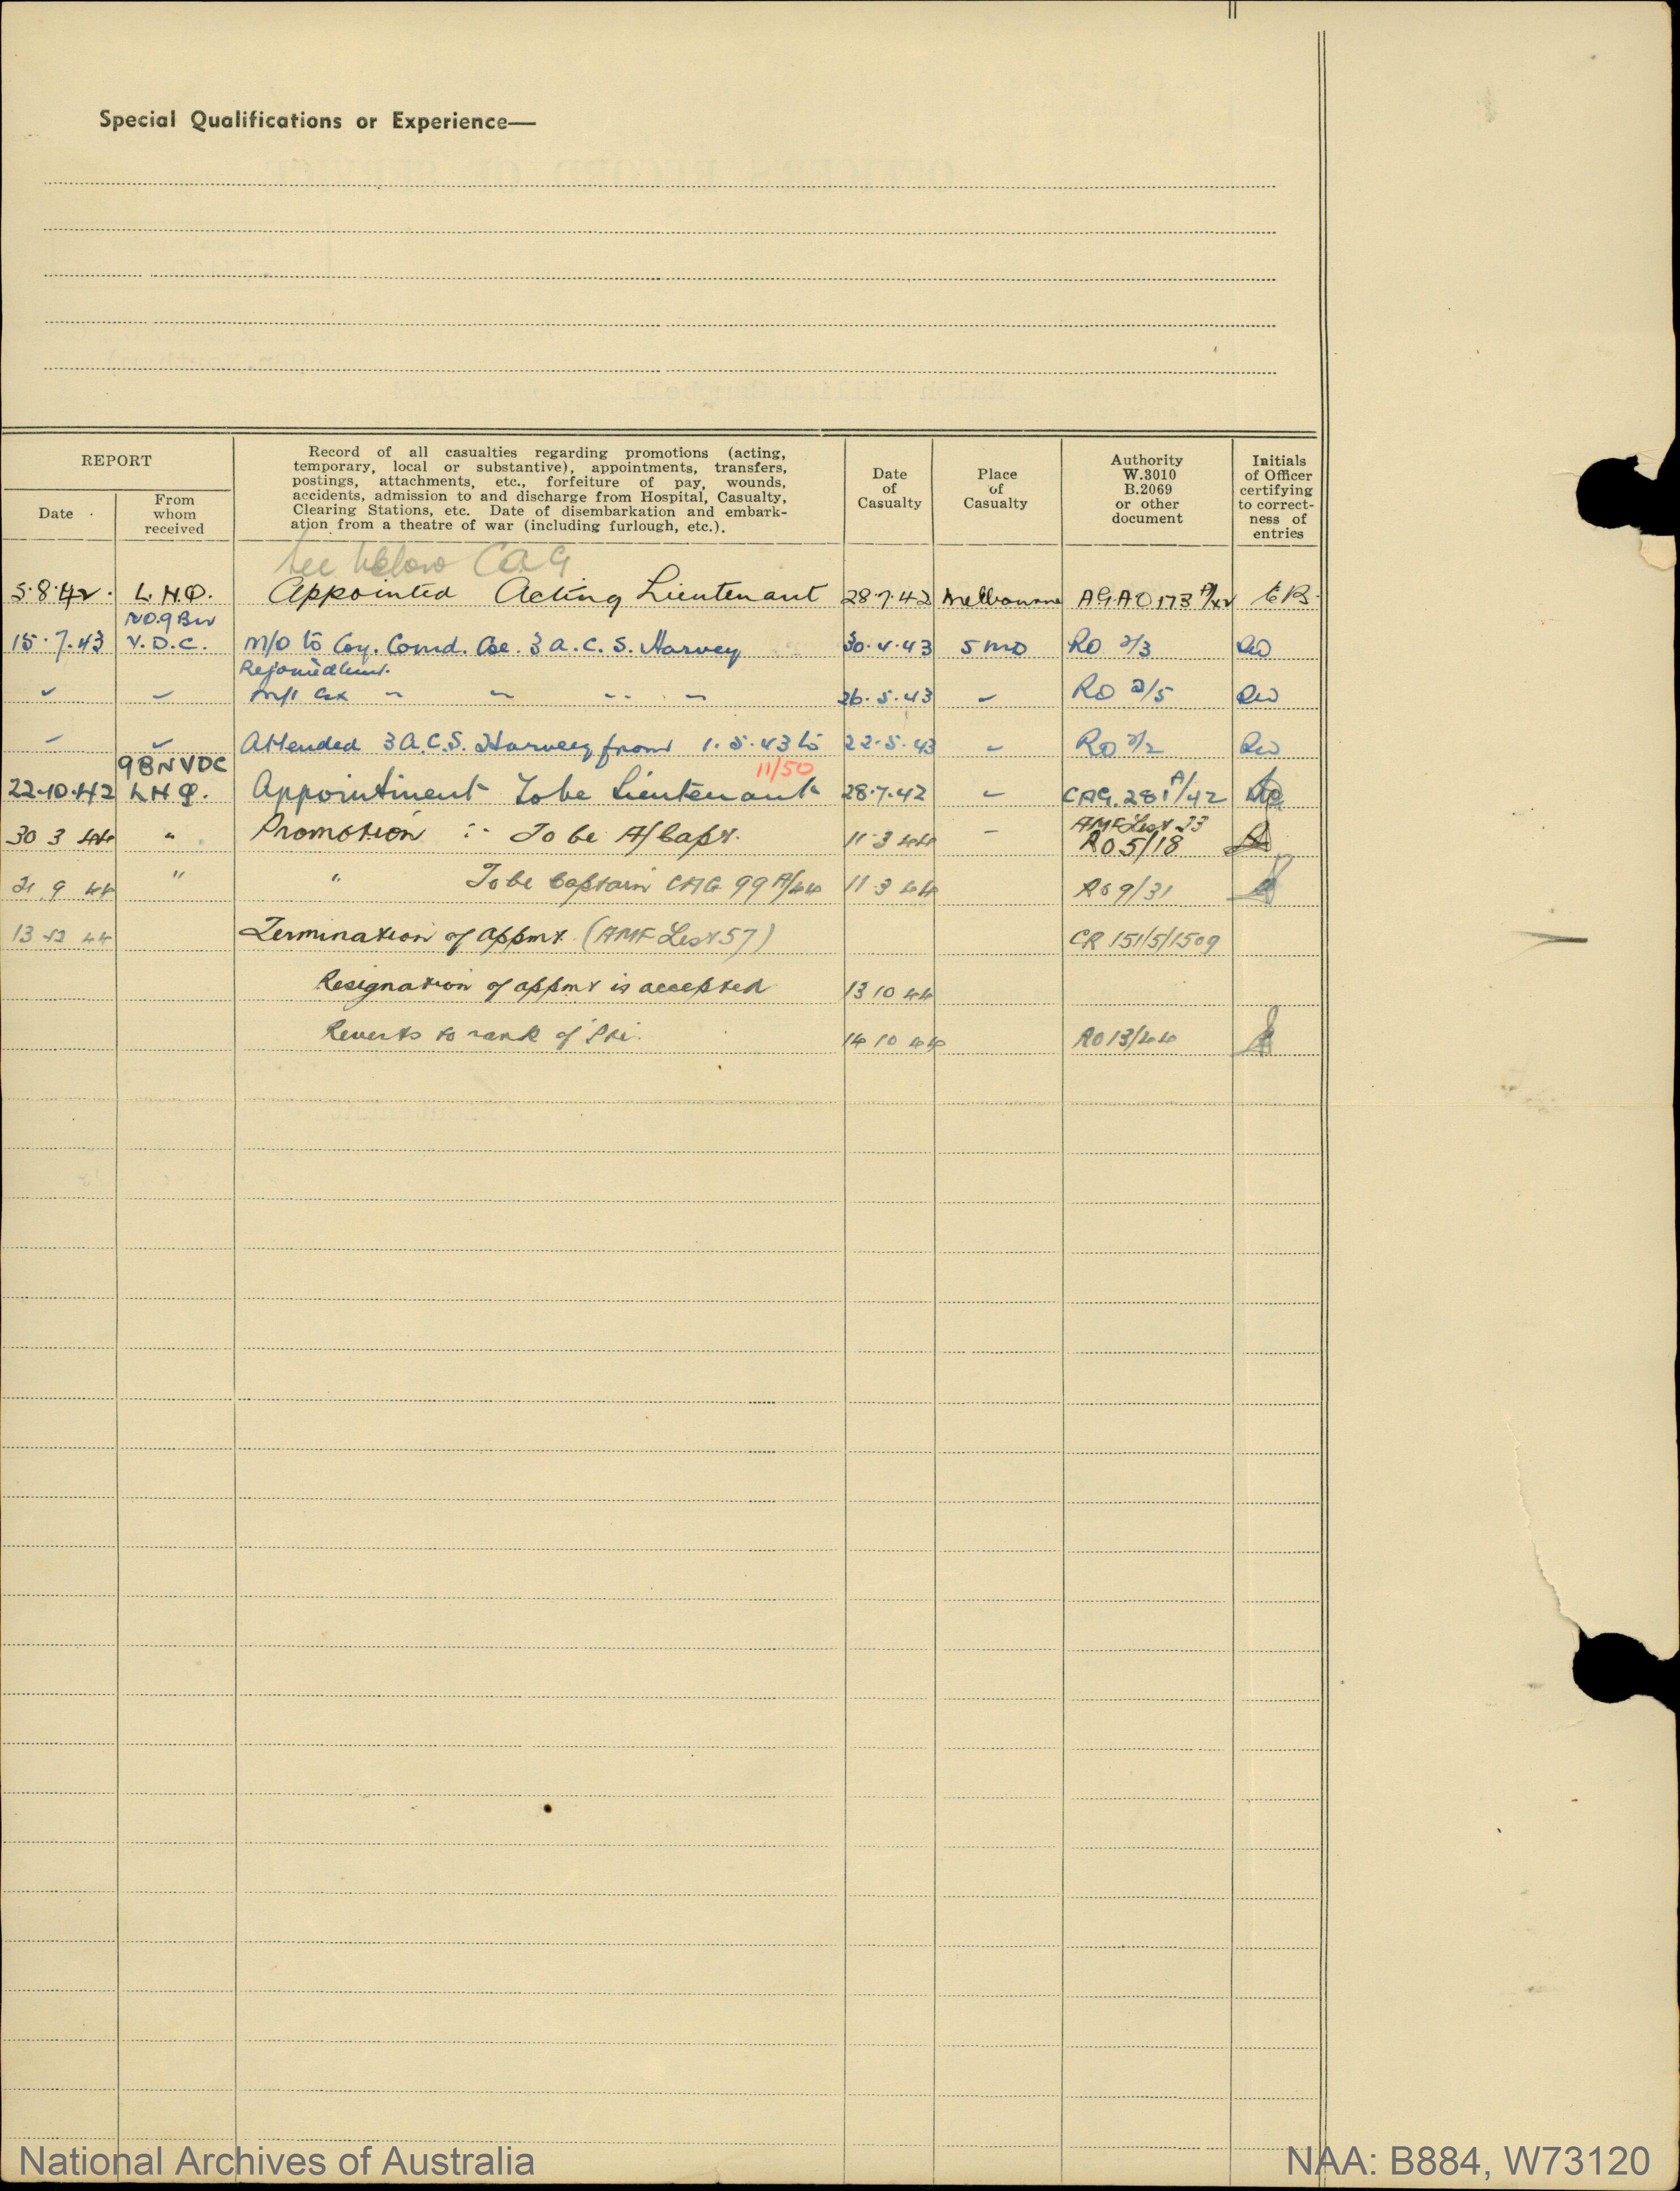 Special Qualifications or Experience—
REPORT
Date
From whom received
Record of all casualties regarding promotions (acting,
temporary, local or substantive), appointments, transfers,
postings, attachments, etc., forfeiture of pay, wounds,
accidents, admission to and discharge from Hospital, Casualty,
Clearing Stations, etc. Date of disembarkation and embark-
ation from a theatre of war (including furlough, etc.).
Date of Casualty
Place of Casualty
Authority W.3010 B.2069 or other document
Initials of Officer certifying to correct-ness of entries
See below CAG
5.8.42. L.H.Q. Appointed Acting Lieutenant 28.7.42 Melbourne AGAO 173 A/42 EB.
NO.9 Bn
15.7.43 V.D.C. M/O to Coy. Comd. Cse. 3 A.C.S. Harvey 30.4.43 5 MD RO 2/3
Rejoined Unit.
M/I ex " " " " 26.5.43 RO 2/5
Attended 3 A.C.S. Harvey from 1.5.43 to 22.5.43 RO 2/2
9BN VDC 11/50
22.10.42 LHQ. Appointment To be Lieutenant 28.7.42 CAG. 281 A/42
AMF List 23
30 3 44 " Promotion :- To be A/Capt. 11 3 44 RO 5/18
21 9 44 " " To be Captain CAG 99 A/44 11 3 44 RO 9/31
13 12 44 Termination of appmt (AMF List 57) CR 151/5/1509
Resignation of appmt is accepted 13 10 44
Reverts to rank of Pte. 14 10 44 RO 13/44
National Archives of Australia
NAA: B884, W73120